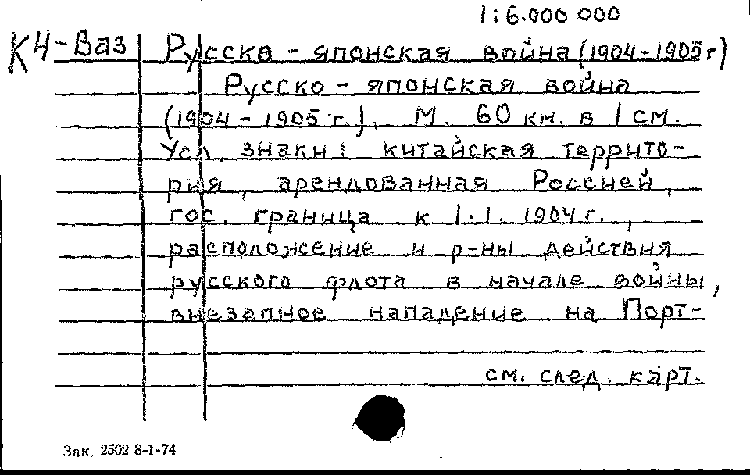 1:6.000 000
К4-Ваз Русско-японская война (1904-1905 г)
Русско-японская война
(1904-1905 г.). М. 60 км. в 1 см.
Усл. знаки: китайская террито-
рия, арендованная Россией,
гос. граница к 1.1. 1904 г.,
расположение и р-ны действия
русского флота в начале войны,
внезапное нападение на Порт-
см. след. карт.
Зак. 2502 8-1-74